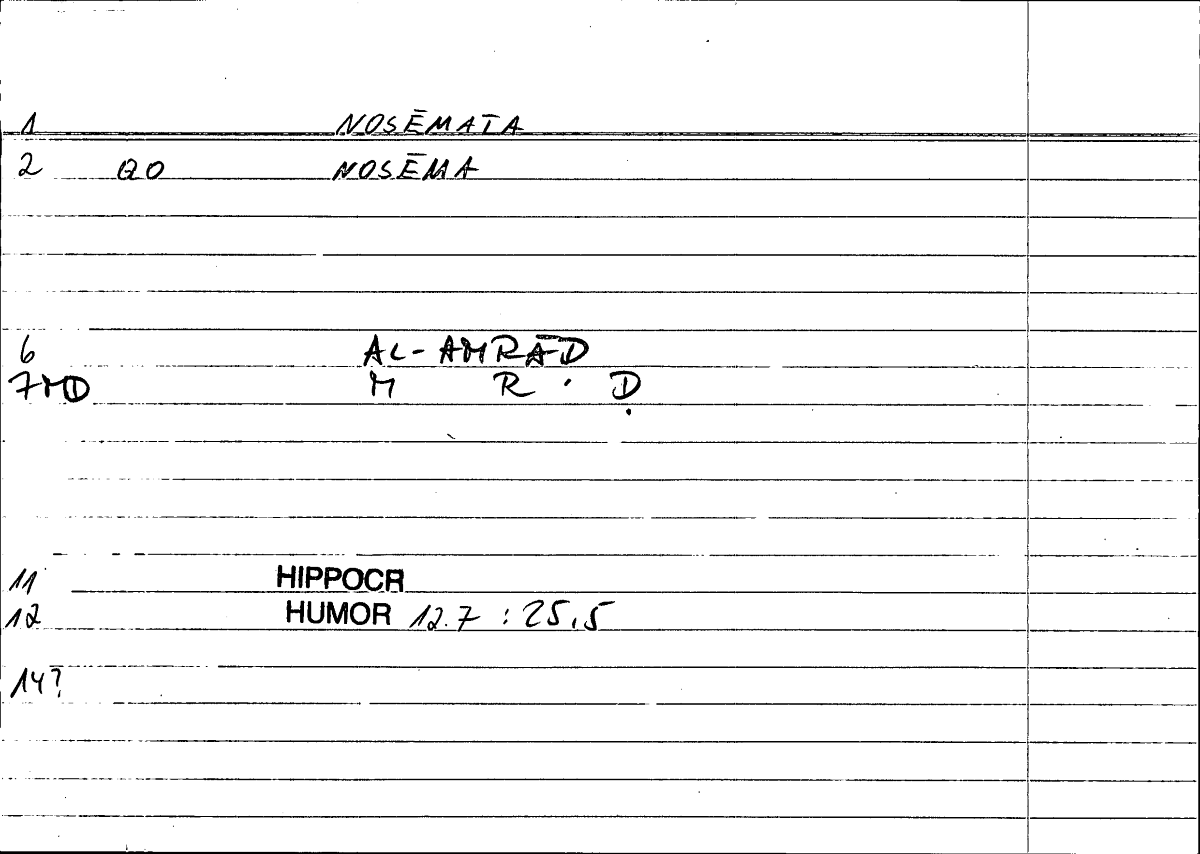 1 NOSĒMATA
2 QO NOSĒMA
6 AL-AMRĀD
7MD M R · Ḍ
11 HIPPOCR
12 HUMOR 12.7 : 25,5
14?